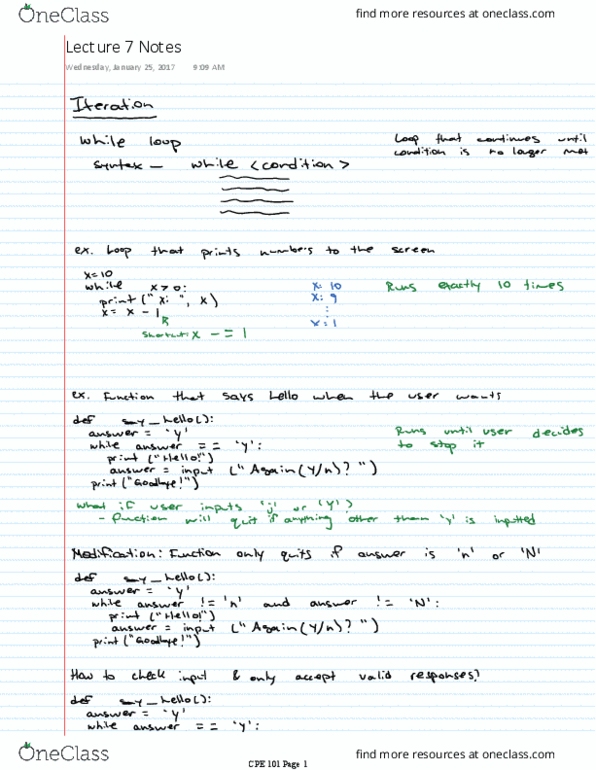 OneClass
find more resources at oneclass.com
Lecture 7 Notes
Wednesday, January 25, 2017 9:09 AM
Iteration
while loop
Loop that continues until
condition is no longer met
syntax — while <condition>
ex. Loop that prints numbers to the screen
x=10
while x>0:
print ("x: ", x)
x= x - 1
shortcut: x -= 1
x: 10
x: 9
⋮
x=1
Runs exactly 10 times
ex. Function that says hello when the user wants
def say_hello():
answer = 'y'
while answer == 'y':
print ("Hello!")
answer = input ("Again (Y/n)? ")
print ("Goodbye!")
Runs until user decides
to stop it
What if user inputs 'j' or 'Y'?
- function will quit if anything other than 'y' is inputted
Modification: Function only quits if answer is 'n' or 'N'
def say_hello():
answer = 'y'
while answer != 'n' and answer != 'N':
print ("Hello!")
answer = input ("Again (Y/n)? ")
print ("Goodbye!")
How to check input & only accept valid responses?
def say_hello():
answer = 'y'
while answer == 'y':
OneClass
CPE 101 Page 1
find more resources at oneclass.com